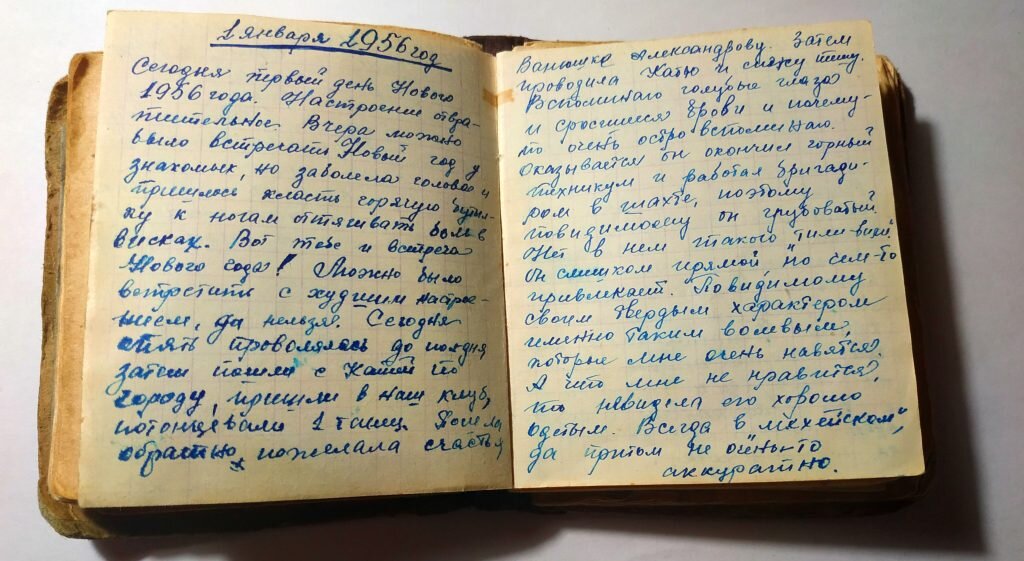 1 января 1956 год
Сегодня первый день Нового
1956 года. Настроение отвра-
тительное. Вчера можно
было встречать Новый год у
знакомых, но заболела голова и
пришлось класть горячую бутыл-
ку к ногам оттягивать боль в
висках. Вот тебе и встреча
Нового года! Можно было
встретить с худшим настрое-
нием, да нельзя. Сегодня
опять провалялась до полдня
затем пошли с Катей по
городу, пришли в наш клуб,
потонцевали 1 танец. Пошла
обратно, пожелала счастья
Ванюшке Александрову. Затем
проводила Катю и
Вспоминаю голубые глаза
и сросшиеся брови и почему-
то очень остро вспоминаю.
Оказывается он окончил горный
техникум и работал бригади-
ром в шахте, поэтому
повидимому он грубоватый.
Нет в нем такого
Он слишком прямой но чем-то
привлекает. Повидимому
своим твердым характером
именно таким волевым,
которые мне очень навятся.
А что мне не нравится,
то невидела его хорошо
одетым. Всегда в
да притом не очень-то
аккуратно.